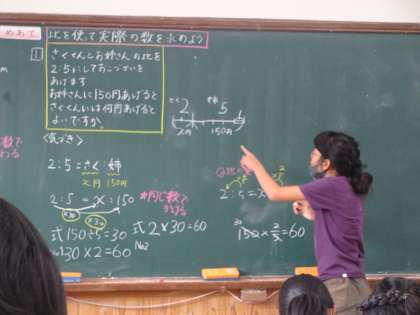 めあて
比を使って実際の数を求めよう
1
さくくんとお姉さんの比を
2:5にしておこづかいを
あげます
お姉さんに150円あげると
さくくんには何円あげると
よいですか。
さく 2 姉 5
x円 150円
<気づき>
2:5=さく:姉
x円 150円
2:5=x:150
×30
×30
*同じ数で
かける
式 150÷5=30
30×2=60
式 2×30=60
No2
2:5=x
30
150×2/5=60